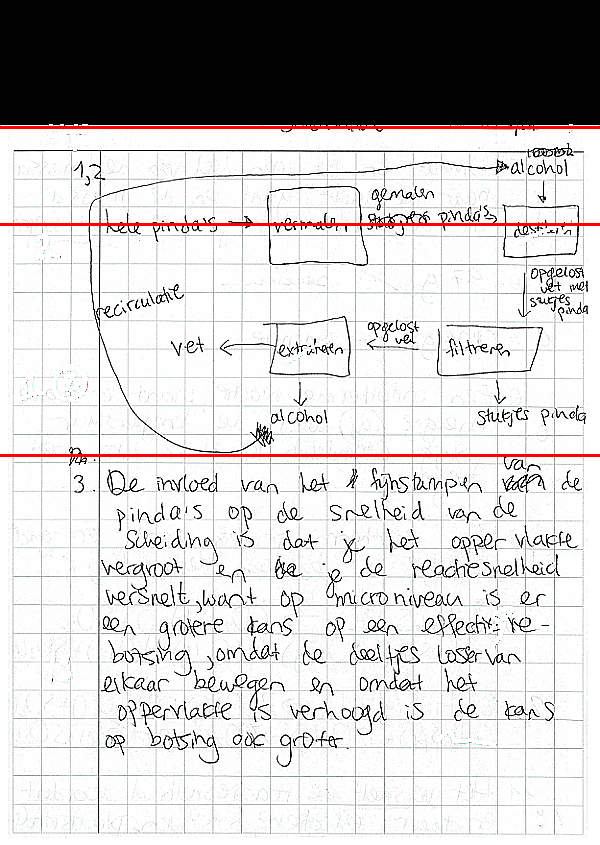 1,2
alcohol
gemalen
hele pinda's → vermalen pinda's
opgelost
vet met
stukjes
pinda
recirculatie
vet ← extraheren opgelost
vet filtreren
alcohol stukjes pinda
3. De invloed van het fijnstampen van de
pinda's op de snelheid van de
Scheiding is dat je het oppervlakte
vergroot en je de reactiesnelheid
versnelt, want op microniveau is er
een grotere kans op een effectieve
botsing, omdat de deeltjes losser van
elkaar bewegen en omdat het
oppervlakte is verhoogd is de kans
op botsing ook groter.